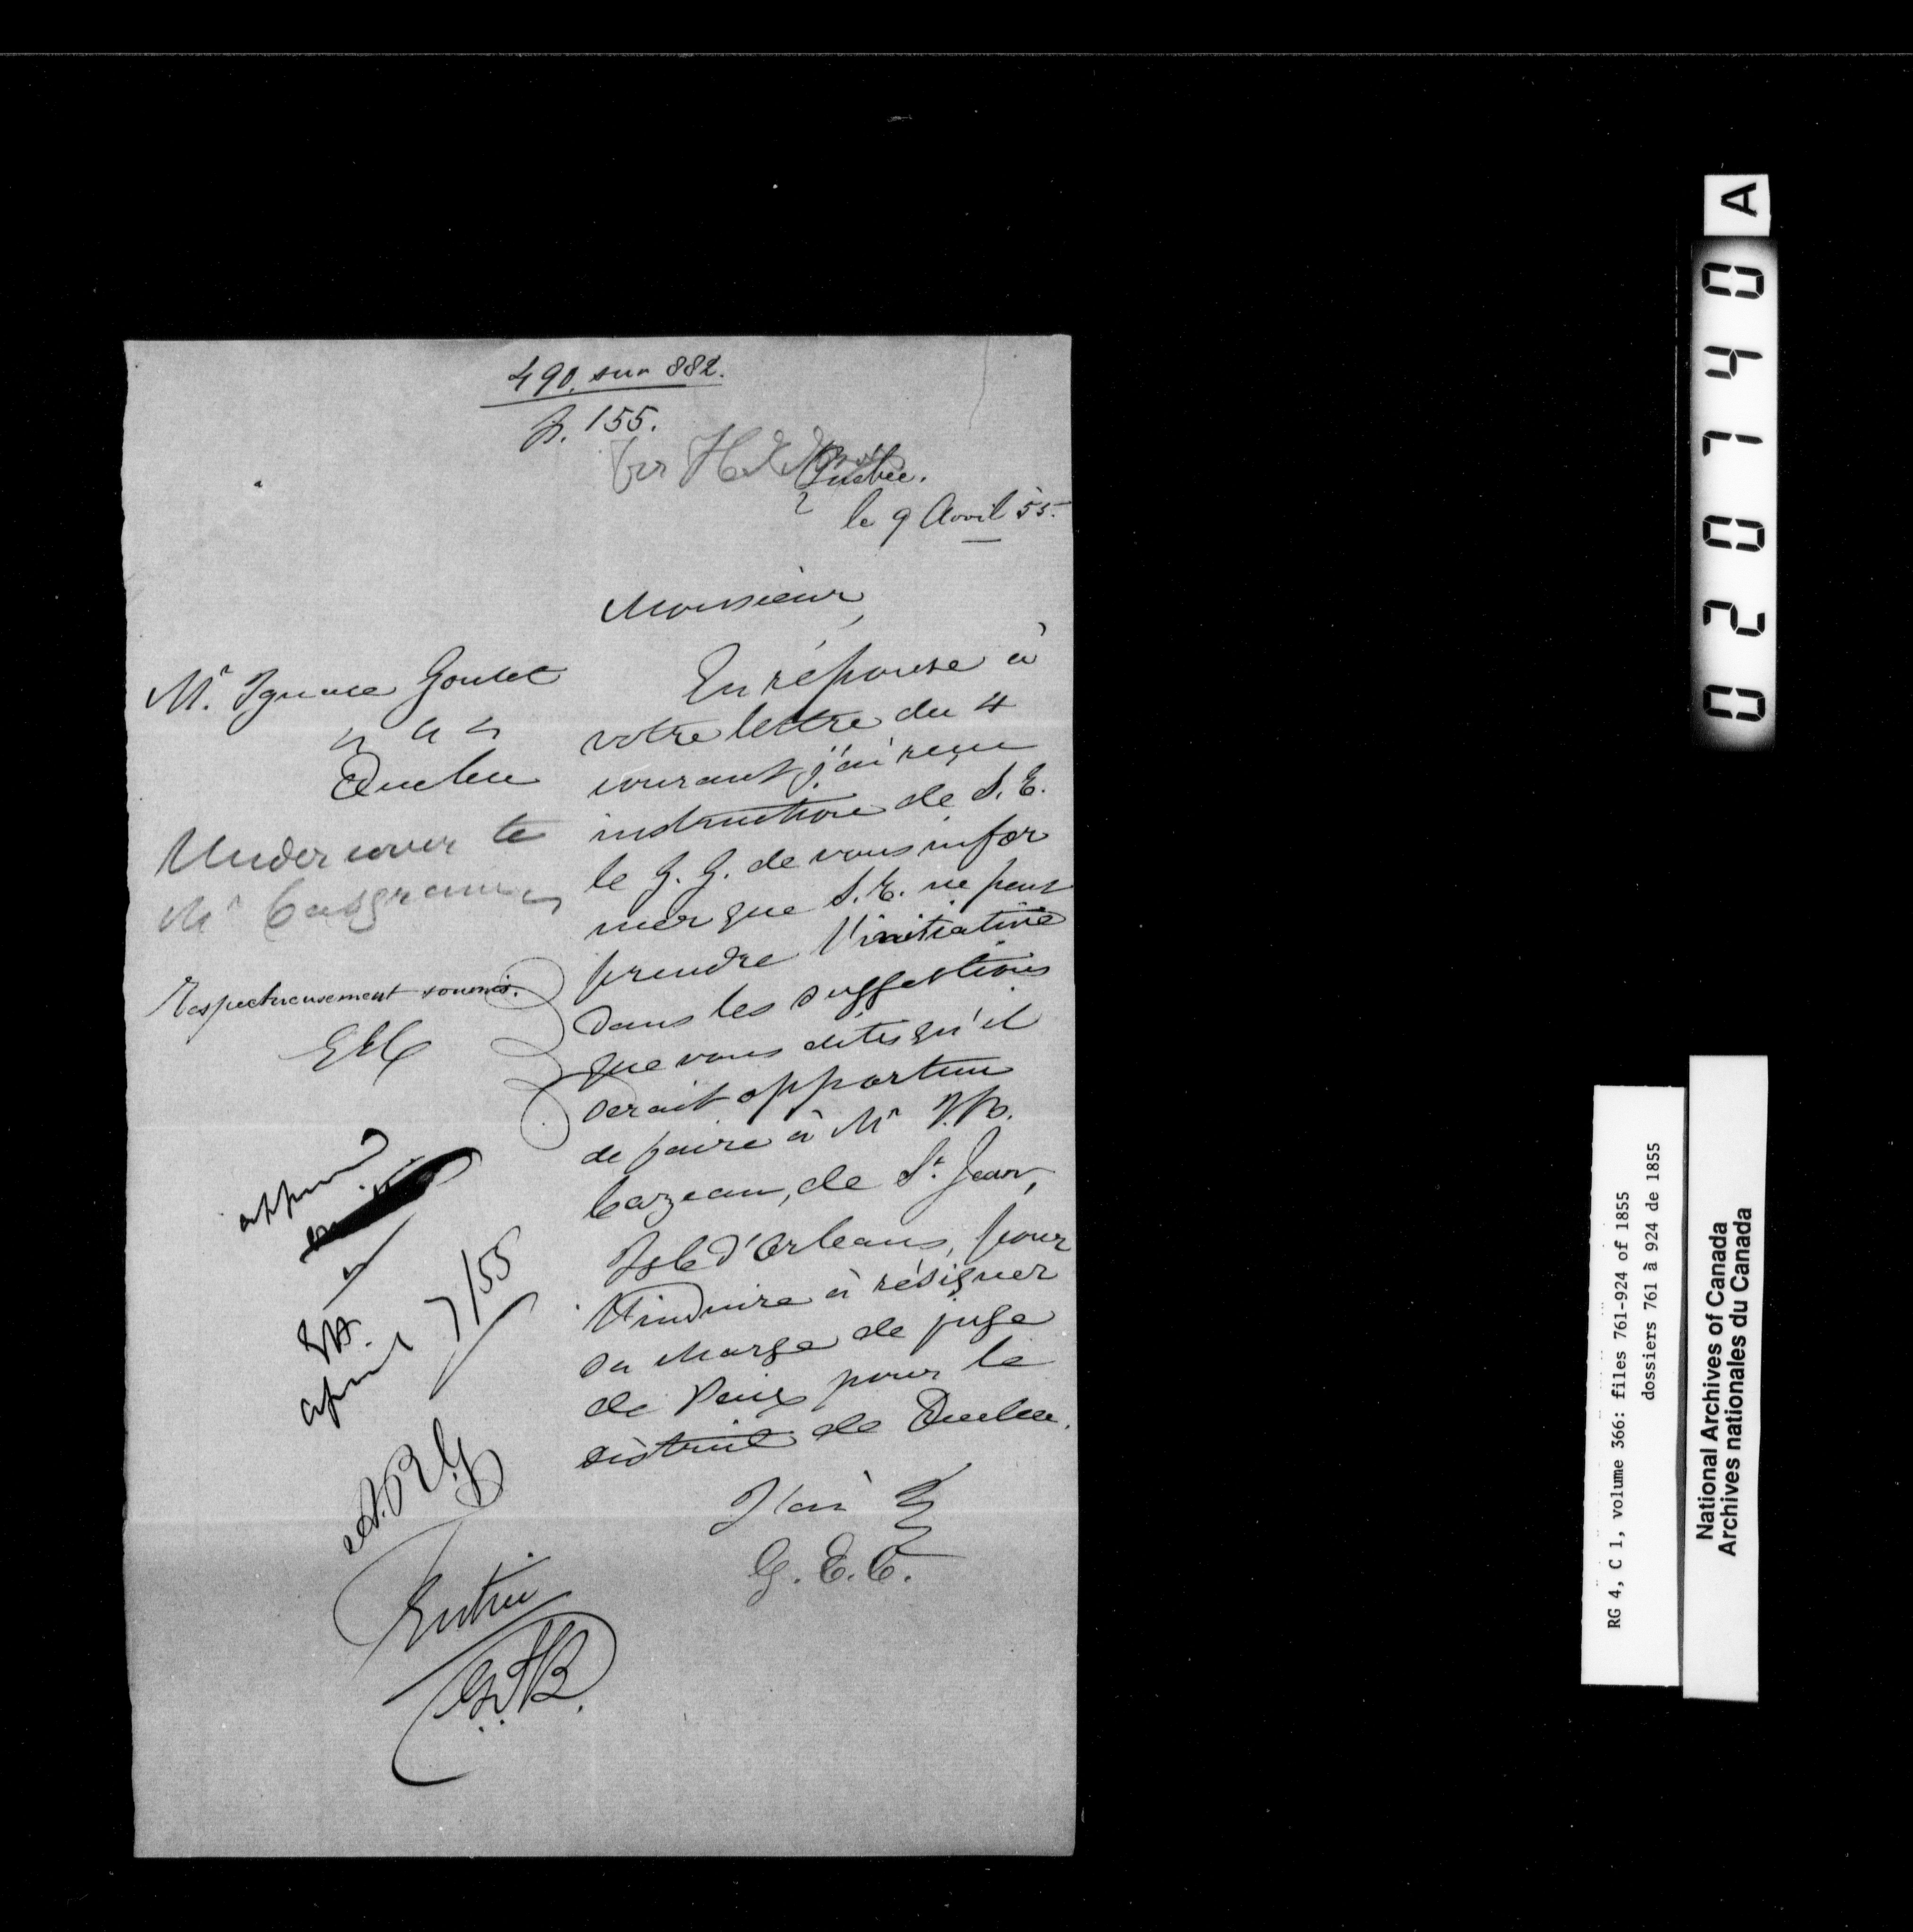 490. sur 882.
p. 155.
Québec.
le 9 Avril 55.
Monsieur,
Mr. Ignace Goulet
" " "
Québec
Under cover to
Mr Casgrain
Respectueusement soumis.
En réponse à
votre lettre du 4
courant, j'ai reçu
instruction de S. E.
le G. G. de vous infor
mer que S. E. ne peut
prendre l'initiative
dans les suggestions
que vous dites qu'il
serait opportun
de faire à Mr J.B.
Cazeau, de St. Jean,
Isle d'Orleans, pour
l'induire à résigner
sa charge de juge
de Paix pour le
district de Québec.
J'ai
G. E. C.
approved
April 7/55
A.R.G
Entrée
G.F.B.
A
020740
RG 4, C 1, volume 366: files 761-924 of 1855
dossiers 761 à 924 de 1855
National Archives of Canada
Archives nationales du Canada